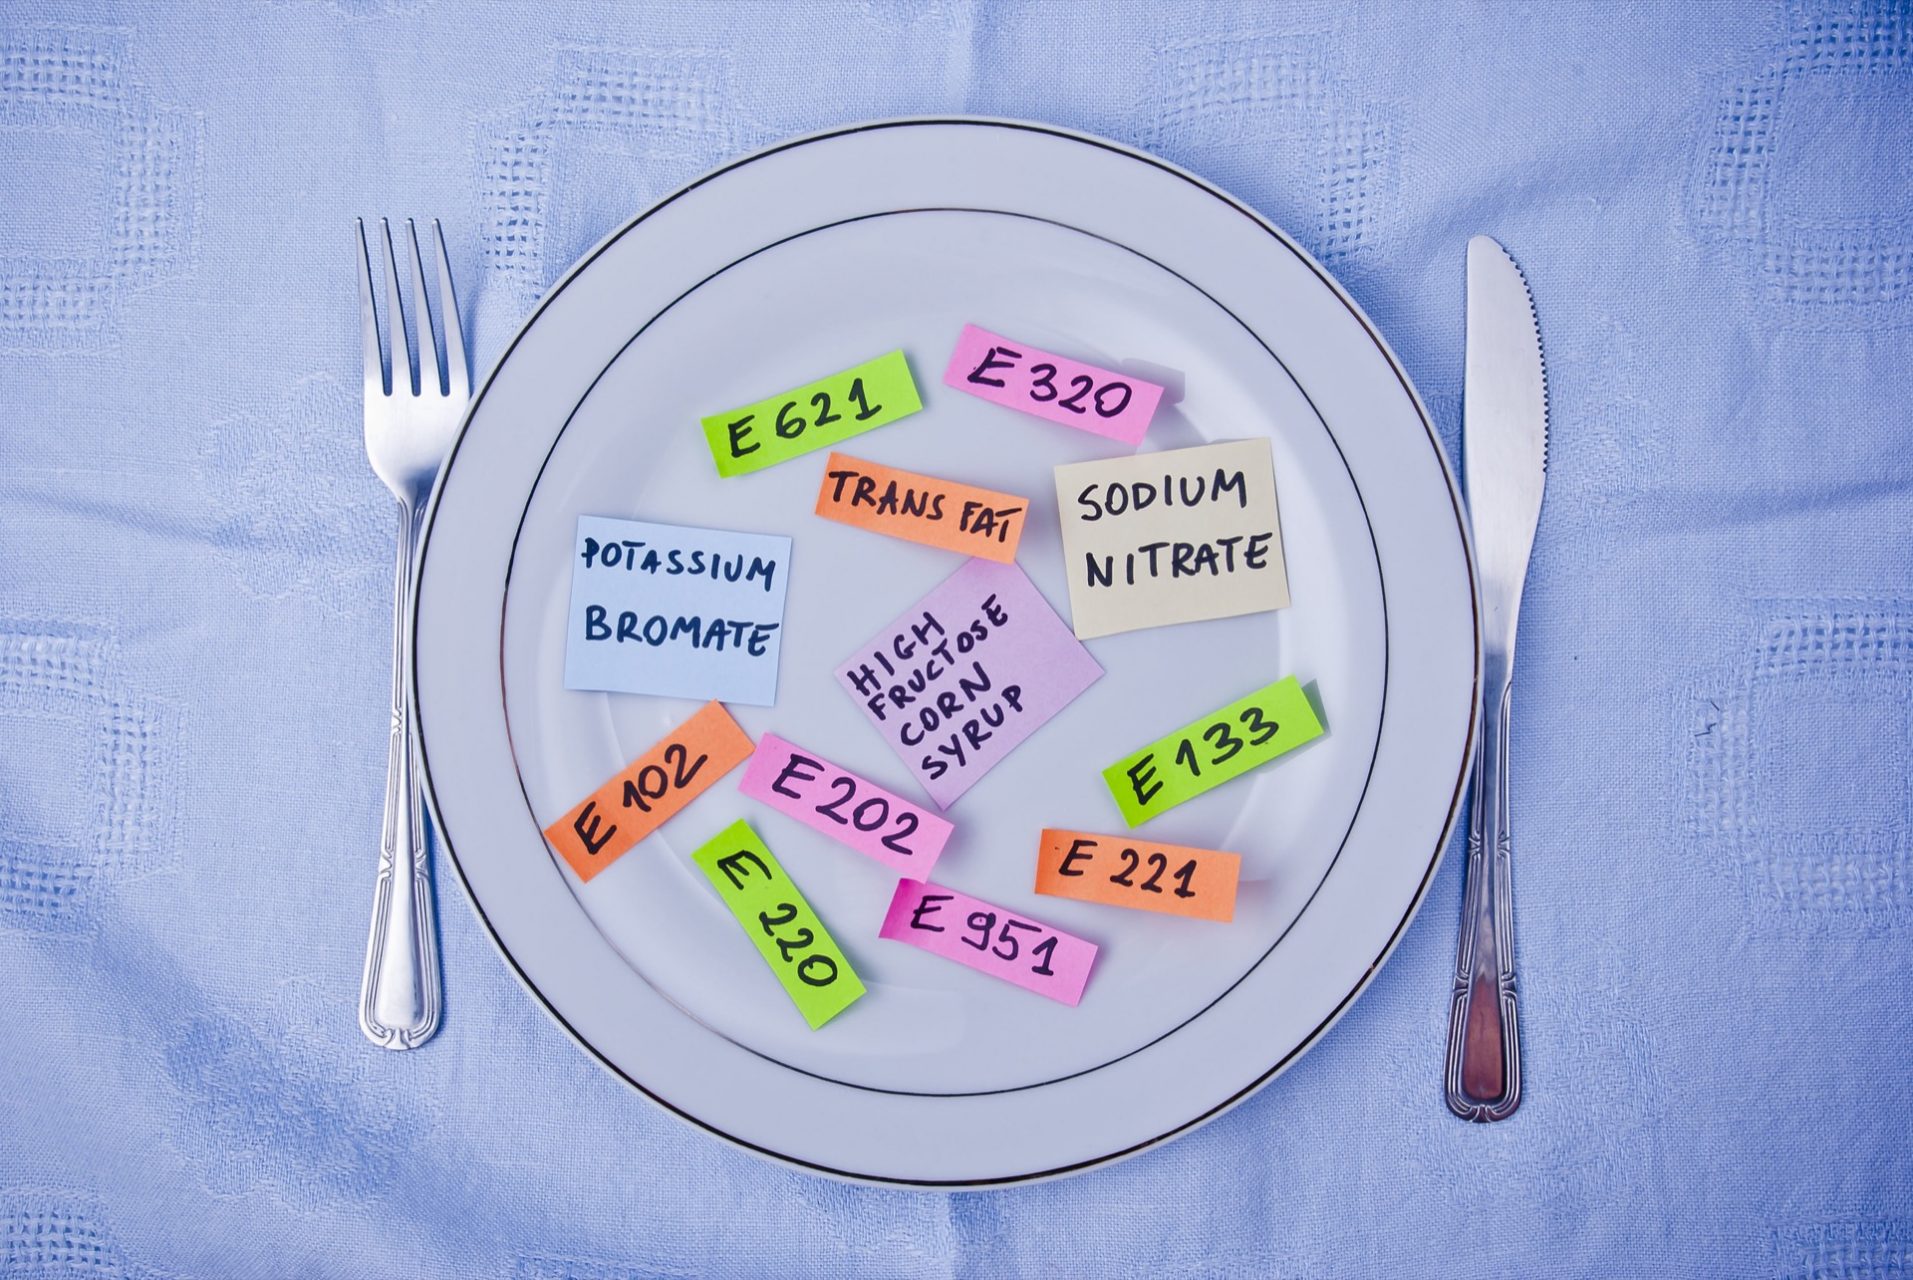 E 320
E 621
TRANS FAT
SODIUM
NITRATE
POTASSIUM
BROMATE
HIGH
FRUCTOSE
CORN
SYRUP
E 133
E 102
E 202
E 221
E 220
E 951